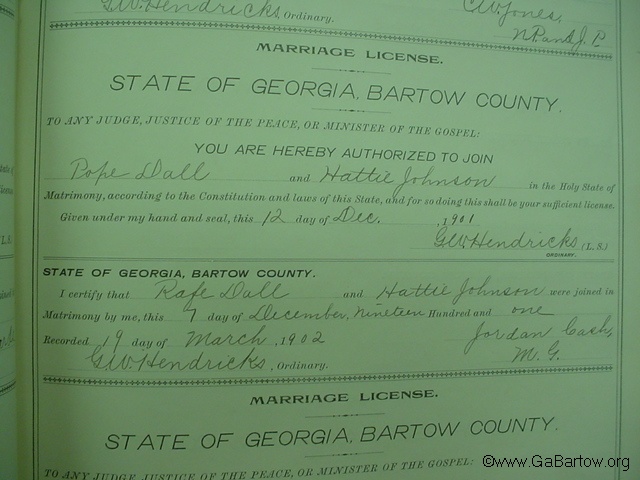 G.W. Hendricks, Ordinary. C.W. Jones,
N.P. and J. P.
MARRIAGE LICENSE.
STATE OF GEORGIA, BARTOW COUNTY.
TO ANY JUDGE, JUSTICE OF THE PEACE, OR MINISTER OF THE GOSPEL:
YOU ARE HEREBY AUTHORIZED TO JOIN
Pope Dall and Hattie Johnson in the Holy State of
Matrimony, according to the Constitution and laws of this State, and for so doing this shall be your sufficient license.
Given under my hand and seal, this 12 day of Dec. , 1901
G.W. Hendricks (L. S.)
ORDINARY.
STATE OF GEORGIA, BARTOW COUNTY.
I certify that Rafe Dall and Hattie Johnson were joined in
Matrimony by me, this 7 day of December, Nineteen Hundred and one
Recorded 19 day of March, 1902 Jordan Cash,
G.W. Hendricks, Ordinary. M. G.
MARRIAGE LICENSE.
STATE OF GEORGIA, BARTOW COUNTY.
TO ANY JUDGE, JUSTICE OF THE PEACE, OR MINISTER OF THE GOSPEL:
©www.GaBartow.org